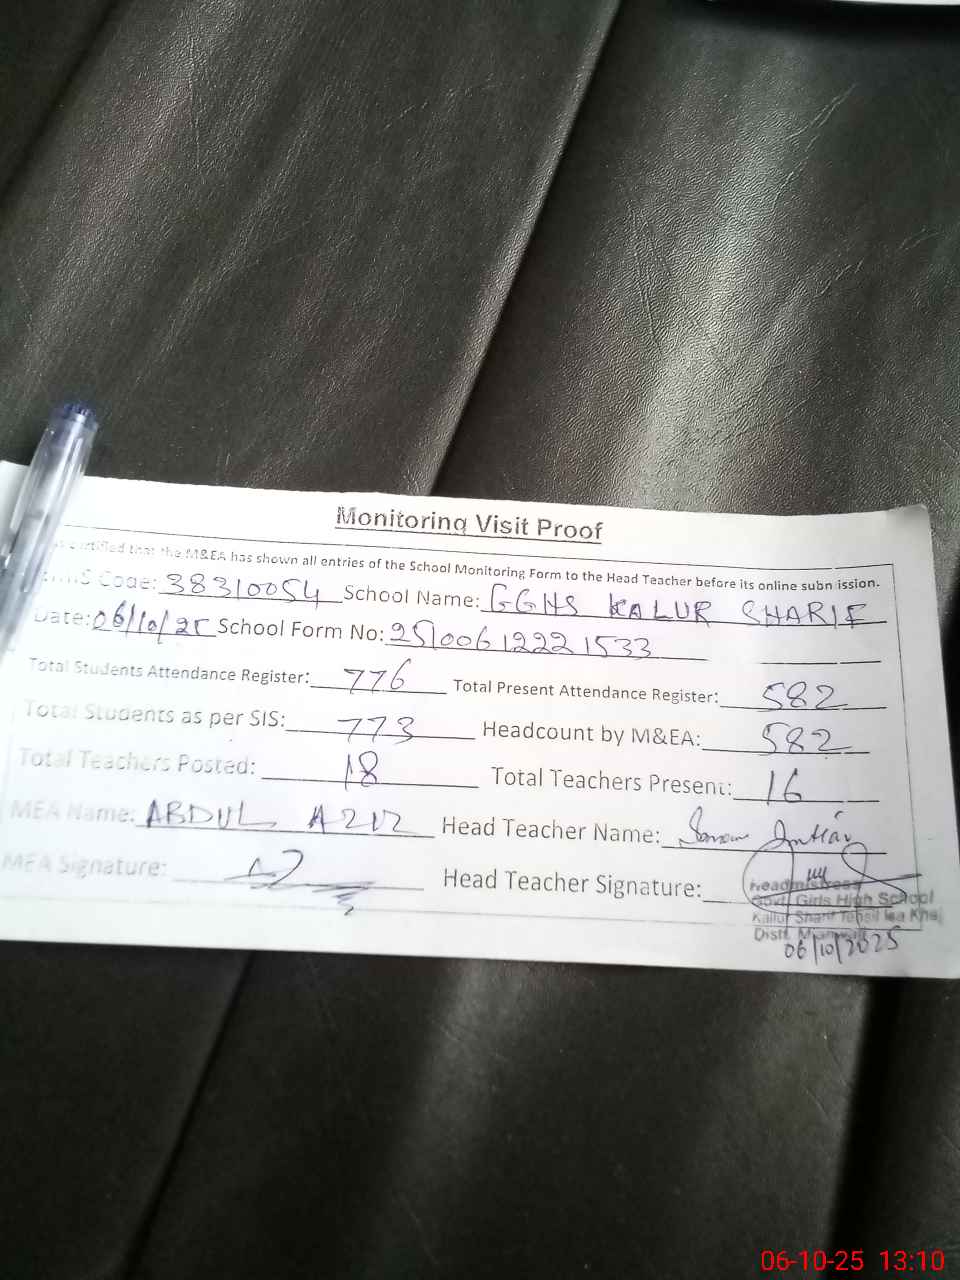 Monitoring Visit Proof
that the M&EA has shown all entries of the School Monitoring Form to the Head Teacher before its online submission.
Code: 38310054 School Name: GGHS KALUR SHARIF
Date: 06/10/25 School Form No: 2510061222 1533
Total Students Attendance Register: 776 Total Present Attendance Register: 582
Total Students as per SIS: 773 Headcount by M&EA: 582
Total Teachers Posted: 18 Total Teachers Present: 16
MEA Name: ABDUL AZIZ Head Teacher Name: Imtiaz
MEA Signature: Head Teacher Signature:
Headmistress
Govt. Girls High School
Kallur Sharif Tehsil Isa Khel
Distt. Mianwali
06/10/2025
06-10-25 13:10